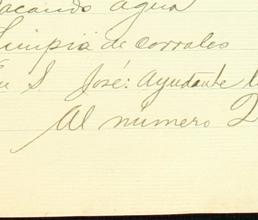 sacando agua
Limpia de corrales
En S José: Ayudante
Al número 2